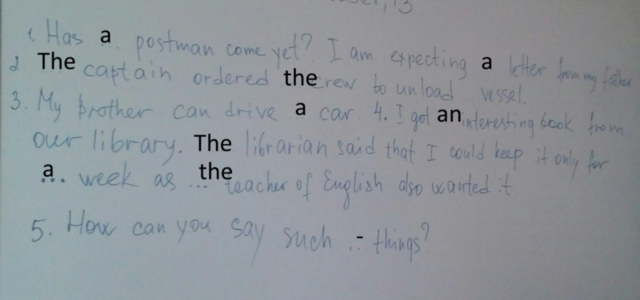 1. Has a postman come yet? I am expecting a letter from my father
2. The captain ordered the crew to unload vessel.
3. My brother can drive a car. 4. I got an interesting book from
our library. The librarian said that I could keep it only for
a... week as ... the teacher of English also wanted it
5. How can you say such .- things?